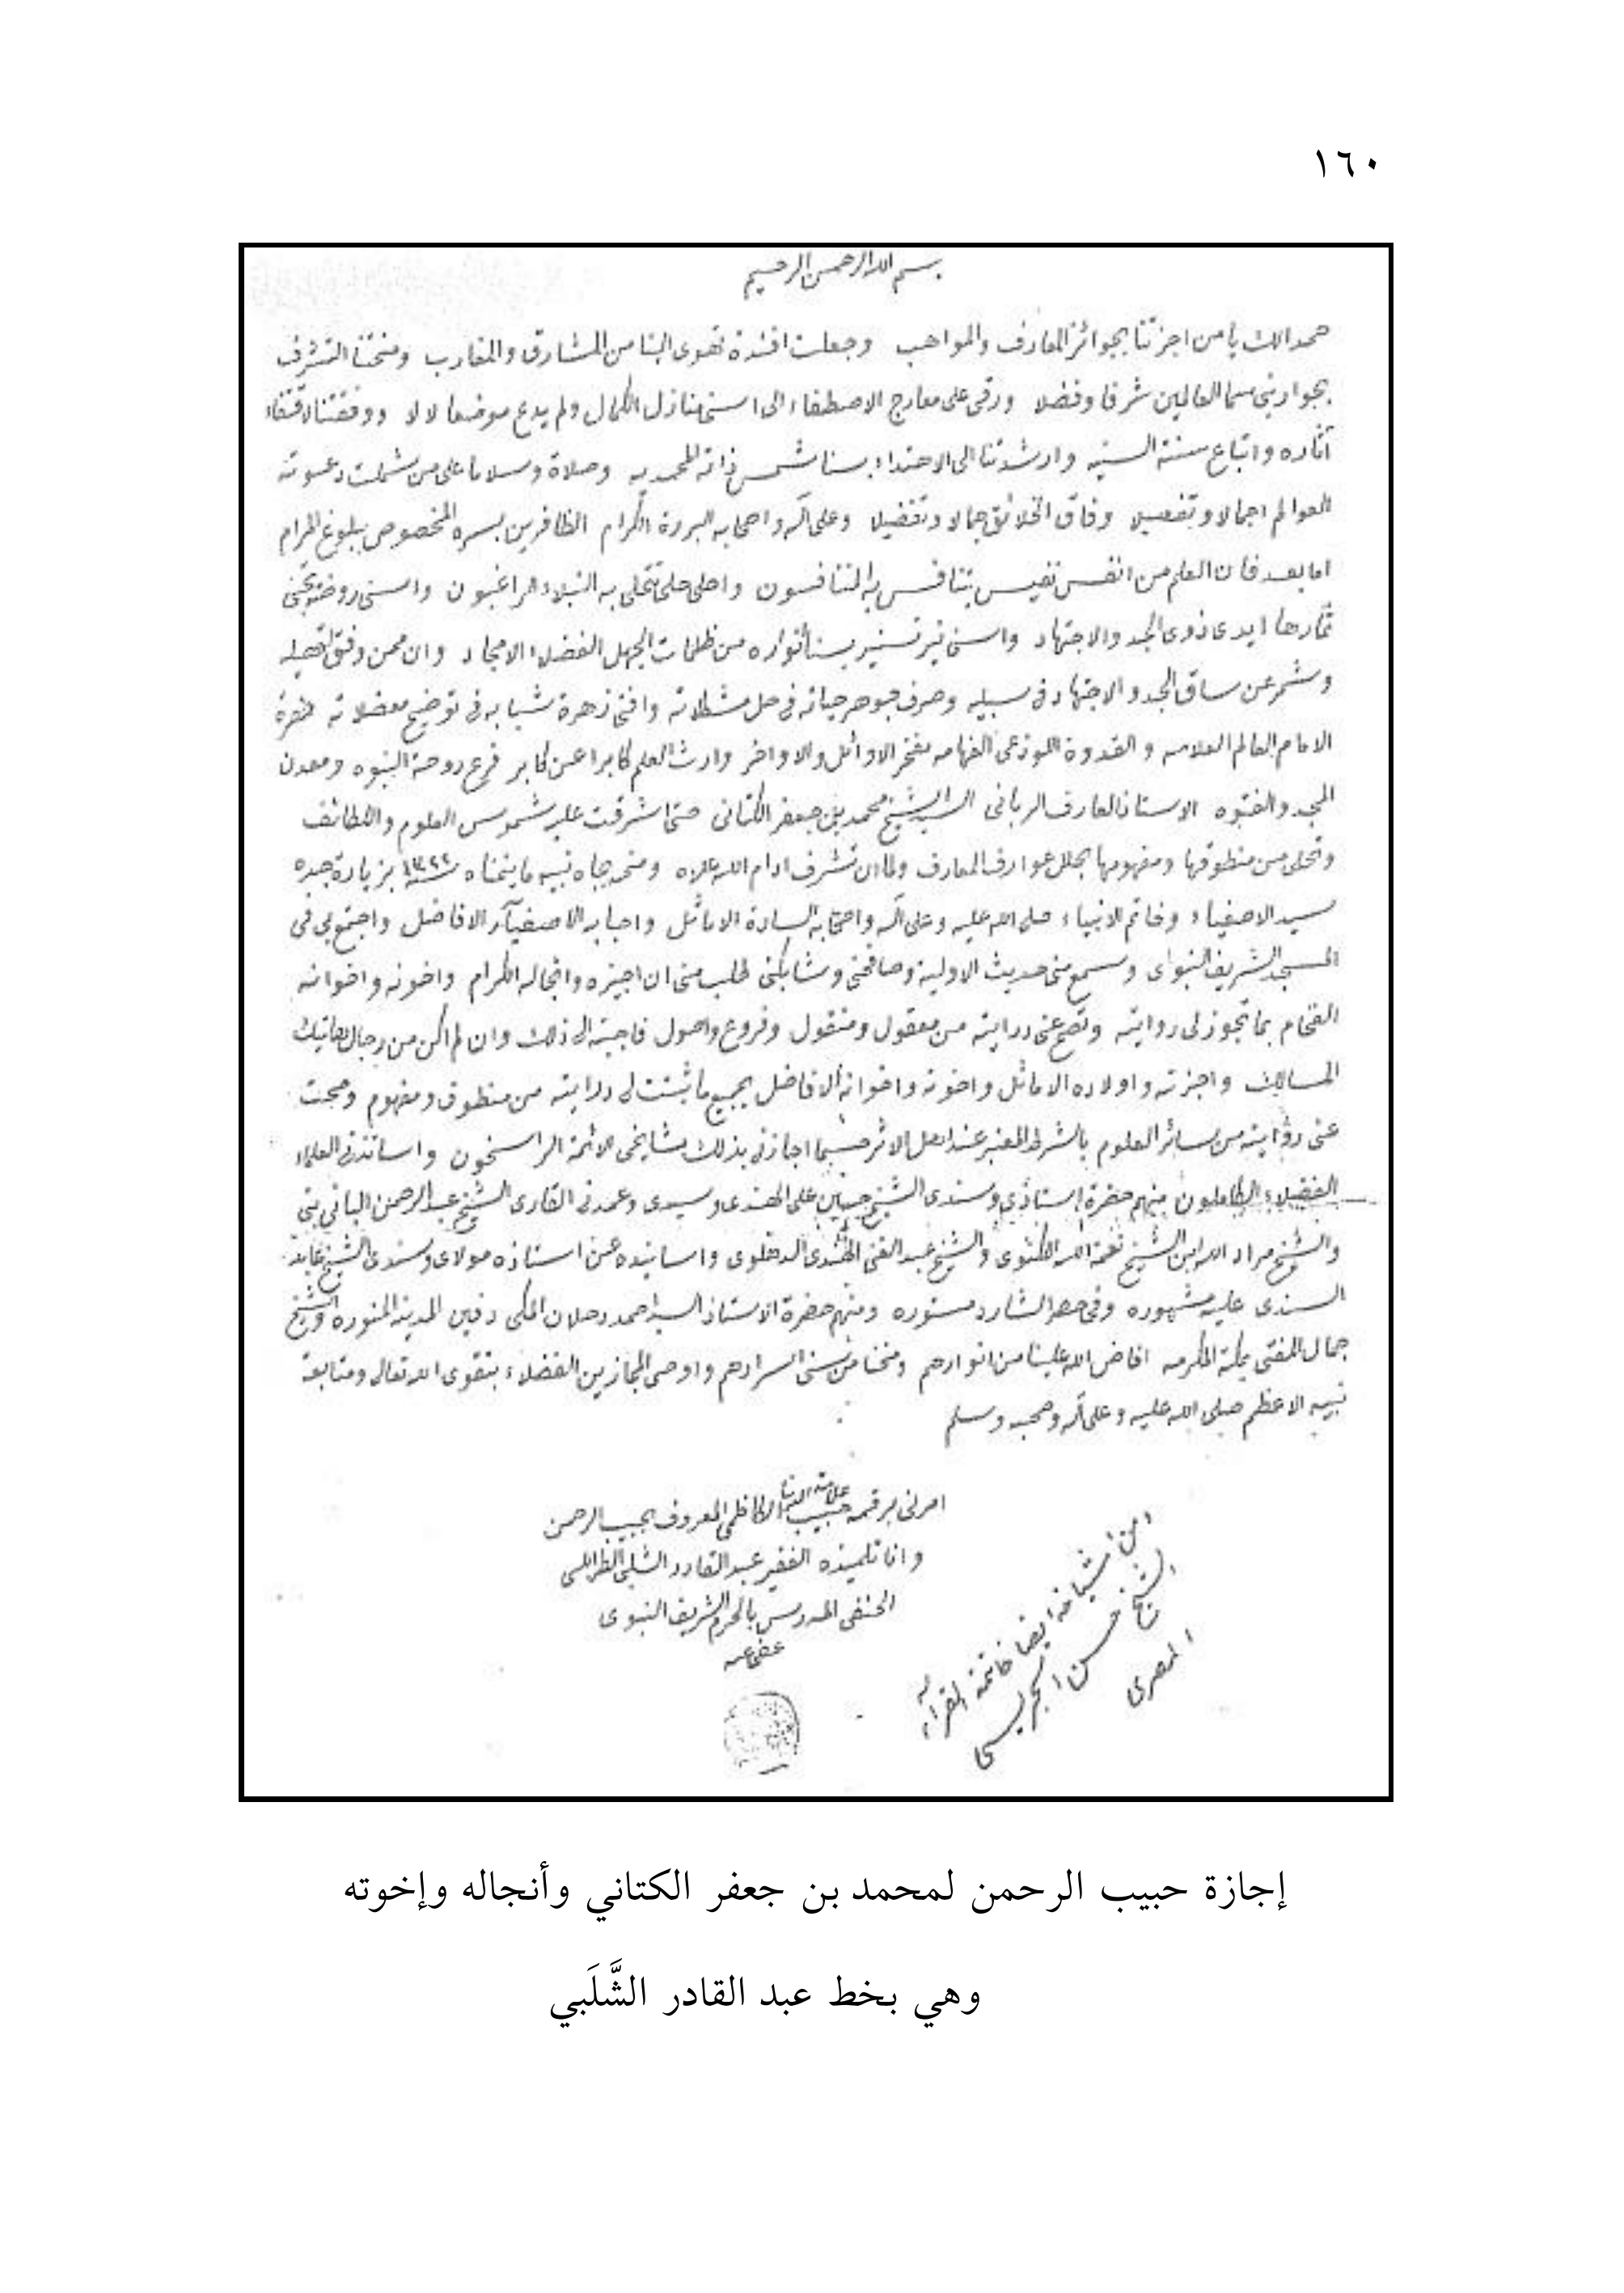 ١٦٠
بسم الله الرحمن الرحيم
حمدا لك يا من اجزتنا بجوائز المعارف والمواهب وجعلت افئدة تهوى الينا من المشارق والمغارب ومنحتنا التشرف
بجوار نبي سما العالمين شرفا وفضلا ورقى على معارج الاصطفاء الى اسنى منازل الكمال ولم يدع موضعا لالا ووفقتنا لاقتفاء
آثاره واتباع سنته السنيه وارشدتنا الى الاهتداء بسنا شمس ذاته المحمديه وصلاة وسلاما على من شملت دعوته
العوالم اجمالا وتفصيلا وفاق الخلائق جمالا وتفضيلا وعلى آله واصحابه البررة الكرام الظافرين بسره المخصوص ببلوغ المرام
اما بعد فان العلم من انفس نفيس يتنافس به المتنافسون واحلى حلى تتحلى به النبلاء الراغبون واسنى روضة تجنى
ثمارها ايدى ذوى الجد والاجتهاد واسنى نير تستنير بسنا انواره من ظلمات الجهل الفضلاء الامجاد وان ممن وفق لتحصيله
وشمر عن ساق الجد والاجتهاد فى سبيله وصرف جوهر حياته فى حل مشكلاته وافنى زهرة شبابه فى توضيح معضلاته حضرة
الامام العالم العلامه والقدوة اللوذعى الفهامه مفخر الاوائل والاواخر وارث العلم كابرا عن كابر فرع دوحة النبوه ومعدن
المجد والفتوه الاستاذ العارف الربانى السيد الشيخ محمد بن جعفر الكتانى حتى اشرقت عليه شموس العلوم واللطائف
وتحلى من منطوقها ومفهومها بحلل عوارف المعارف ولما ان تشرف ادام الله علاه ومنحه بجاه نبيه ما يتمناه سنة ١٣٢٢ بزيارة جده
سيد الاصفياء وخاتم الانبياء صلى الله عليه وعلى آله واصحابه السادة الاماثل واحبابه الاصفيآء الافاضل واجتمع بى فى
المسجد الشريف النبوى وسمع منى حديث الاولية وصافحنى وشابكنى طلب منى ان اجيزه وانجاله الكرام واخوته واخوانه
الفخام بما تجوز لى روايته وتصح عنى درايته من معقول ومنقول وفروع واصول فاجبته الى ذلك وان لم اكن من رجال هاتيك
المسالك واجزته واولاده الاماثل واخوته واخوانه الافاضل بجميع ما ثبتت لى درايته من منطوق ومفهوم وصحت
عنى روايته من سائر العلوم بالشرط المعتبر عند اهل الاثر حسبما اجازنى بذلك مشايخى الائمة الراسخون واساتذتى العلماء
الفضلاء الكاملون منهم حضرة استاذي وسندى الشيخ حسين على الهندى وسيدى وعمدتى القارى الشيخ عبد الرحمن البانى بتى
والشيخ مراد الله ابن الشيخ نعمة الله اللكنوى والشيخ عبد الغنى الهندى الدهلوى واسانيده عن استاذه مولاى وسندى الشيخ عابد
السندى عليه مشهوره وفى حصر الشارد مستوره ومنهم حضرة الاستاذ السيد احمد دحلان المكى دفين المدينة المنوره والشيخ
جمال المفتى بمكة المكرمه افاض الله علينا من انوارهم ومنحنا من سنى اسرارهم واوصى المجازين الفضلاء بتقوى الله تعالى ومتابعة
نبيه الاعظم صلى الله عليه وعلى آله وصحبه وسلم
امرنى برقمه حبيب الكاظمى المعروف بحبيب الرحمن
وانا تلميذه الفقير عبد القادر الشلبى الطرابلسى
الحنفى المدرس بالحرم الشريف النبوى
عفى عنه
من اشياخه ايضا خاتمة القراء
الشيخ حسن الجريسى
المصرى
إجازة حبيب الرحمن لمحمد بن جعفر الكتاني وأنجاله وإخوته
وهي بخط عبد القادر الشَّلَبي